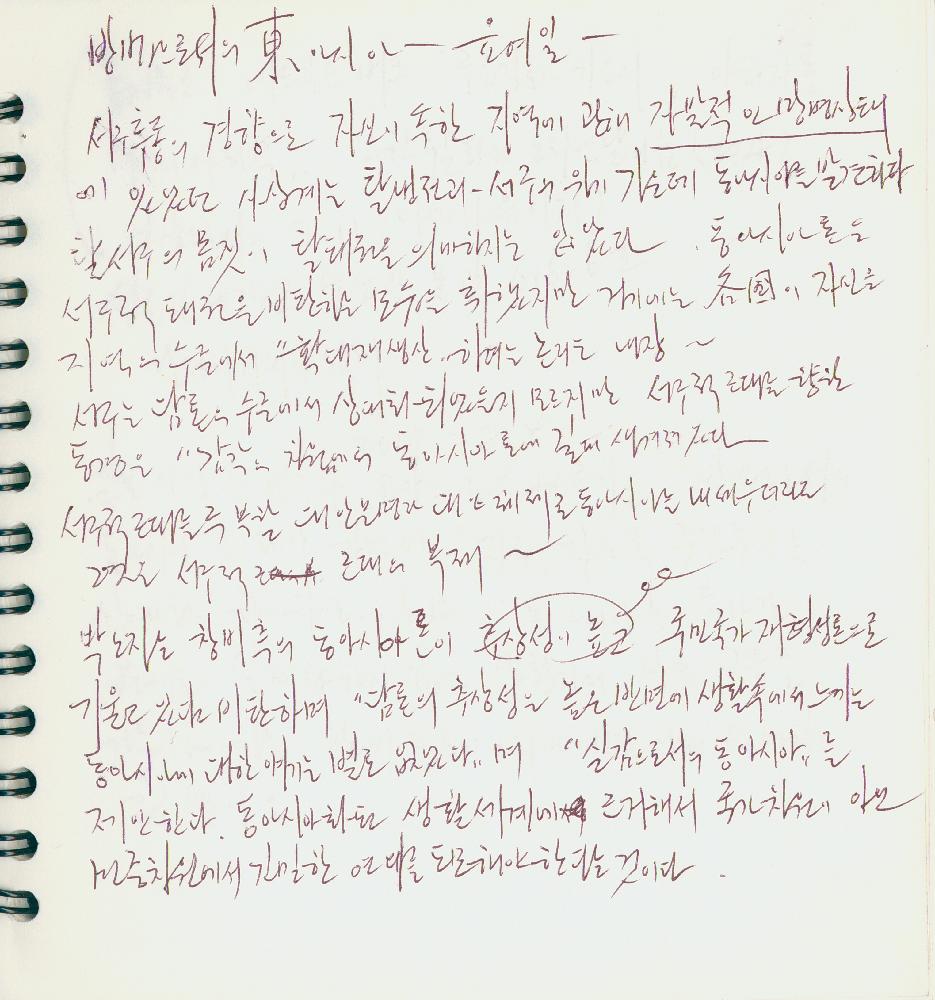 방법으로서의 東아시아 - 윤여일 -
서구추종의 경향으로 자신이 속한 지역에 관해 자발적인 망명상태
에 있었던 사상계는 탈냉전과 - 서구의 위기 가운데 동아시아를 발견하다
탈서구의 몸짓이 탈패권을 의미하지는 않았다. 동아시아론은
서구적 패권을 비판하는 모습을 취했지만 거기에는 各國이 자신을
지역의 수준에서 "확대재생산" 하려는 논리도 내장 ~
서구는 담론의 수준에서 상대화되었을지 모르지만 서구적 근대를 향한
동경은 "감각의 차원에서 동아시아론에 깊이 새겨져 있다
서구적 근대를 극복할 대안문명과 대 체제로 동아시아를 내세우더라도
결국 서구적 근대의 복제 ~
박노자는 창비측의 동아시아론이 추상성이 높고 국민국가 재형성론으로
기울고 있다고 비판하며 "담론의 추상성은 높은 반면에 생활속에서 느끼는
동아시아에 대한 얘기는 별로 없었다" 며 "실감으로서의 동아시아" 를
제안한다. 동아시아화란 생활세계에 근거해서 국가차원이 아닌
민중차원에서 긴밀한 연대를 도모해야 한다는 것이다.